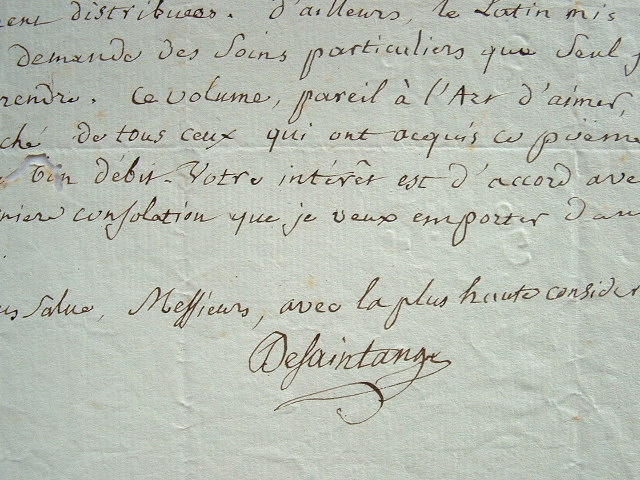 ent distribuees. d'ailleurs, le Latin mis
demande des soins particuliers que seul
rendre. ce volume, pareil à l'Art d'aimer,
ché de tous ceux qui ont acquis ce poëme
bon débit. Votre intérêt est d'accord ave
niere consolation que je veux emporter dan
us salue, Messieurs, avec la plus haute consider
DeSaintange